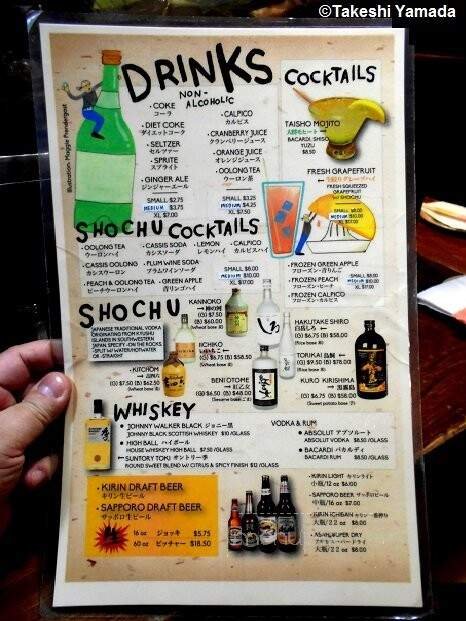 ©Takeshi Yamada
Illustration: Maggie Prendergast
DRINKS
NON-
ALCOHOLIC
• COKE
コーラ
• DIET COKE
ダイエットコーク
• SELTZER
セルツァー
• SPRITE
スプライト
• GINGER ALE
ジンジャーエール
SMALL: $2.75
XL: $7.00
• CALPICO
カルピス
• CRANBERRY JUICE
クランベリージュース
• ORANGE JUICE
オレンジジュース
• OOLONG TEA
ウーロン茶
SMALL: $3.25
MEDIUM: $4.25
XL: $7.50
COCKTAILS
TAISHO MOJITO
BACARDI, SHISO
YUZU
$8.50
FRESH GRAPEFRUIT
FRESH SQUEEZED
GRAPEFRUIT
w/ SHOCHU
XL: $17.00
• FROZEN GREEN APPLE
フローズン・青りんご
• FROZEN PEACH
フローズン・ピーチ
• FROZEN CALPICO
フローズン・カルピス
SHOCHU COCKTAILS
• OOLONG TEA
ウーロンハイ
• CASSIS SODA
カシスソーダ
• LEMON
レモンハイ
• CALPICO
カルピスハイ
• CASSIS OOLONG
カシスウーロン
• PLUM WINE SODA
プラムワインソーダ
• PEACH & OOLONG
ピーチウーロンハイ
• GREEN APPLE
青りんごハイ
SMALL: $6.00
MEDIUM $10.00
XL: $17.00
SHOCHU
JAPANESE TRADITIONAL VODKA
ORIGINATING FROM KYUSHU
ISLANDS IN SOUTHWESTERN
JAPAN. SPECIFY -ON THE ROCKS
-SPLIT W/ WATER/HOTWATER
OR -STRAIGHT
KANNOKO
(G) $7.50
(B) $60.00
(Wheat base 麦)
IICHIKO
いいちこ
(G) $6.75 (B) $58.50
(Wheat base 麦)
KITCHOM
(G) $7.50 (B) $62.50
(Wheat base 麦)
BENI OTOME
紅乙女
(G) $6.50 (B) $48.00
HAKUTAKE SHIRO
白岳しろ
(G) $6.75 (B) $58.00
(Rice base 米)
TORIKAI 鳥飼
(G) $9.50 (B) $78.00
(Rice base 米)
KURO KIRISHIMA
黒霧島
(G) $6.75 (B) $58.00
(Sweet potato base 芋)
WHISKEY
• JOHNNY WALKER BLACK ジョニー黒
JOHNNY BLACK, SCOTTISH WHISKEY $10/GLASS
• HIGH BALL ハイボール
HOUSE WHISKEY HIGH BALL $7.50 /GLASS
SUNTORY TOKI サントリー季
ROUND SWEET BLEND w/ CITRUS & SPICY FINISH $12 /GLASS
VODKA & RUM
• ABSOLUT アブソルート
ABSOLUT VODKA $8.50 /GLASS
• BACARDI バカルディ
BACARDI RUM $8.50 /GLASS
• KIRIN DRAFT BEER
キリン生ビール
• SAPPORO DRAFT BEER
サッポロ生ビール
16 oz ジョッキ $5.75
60 oz ピッチャー $18.50
• KIRIN LIGHT キリンライト
小瓶/12 oz $6.00
• SAPPORO BEER サッポロビール
中瓶/16 oz $7.00
• KIRIN ICHIBAN キリン一番搾り
大瓶/22 oz $8.00
• ASAHI SUPER DRY
アサヒスーパードライ
大瓶/22 oz $8.00